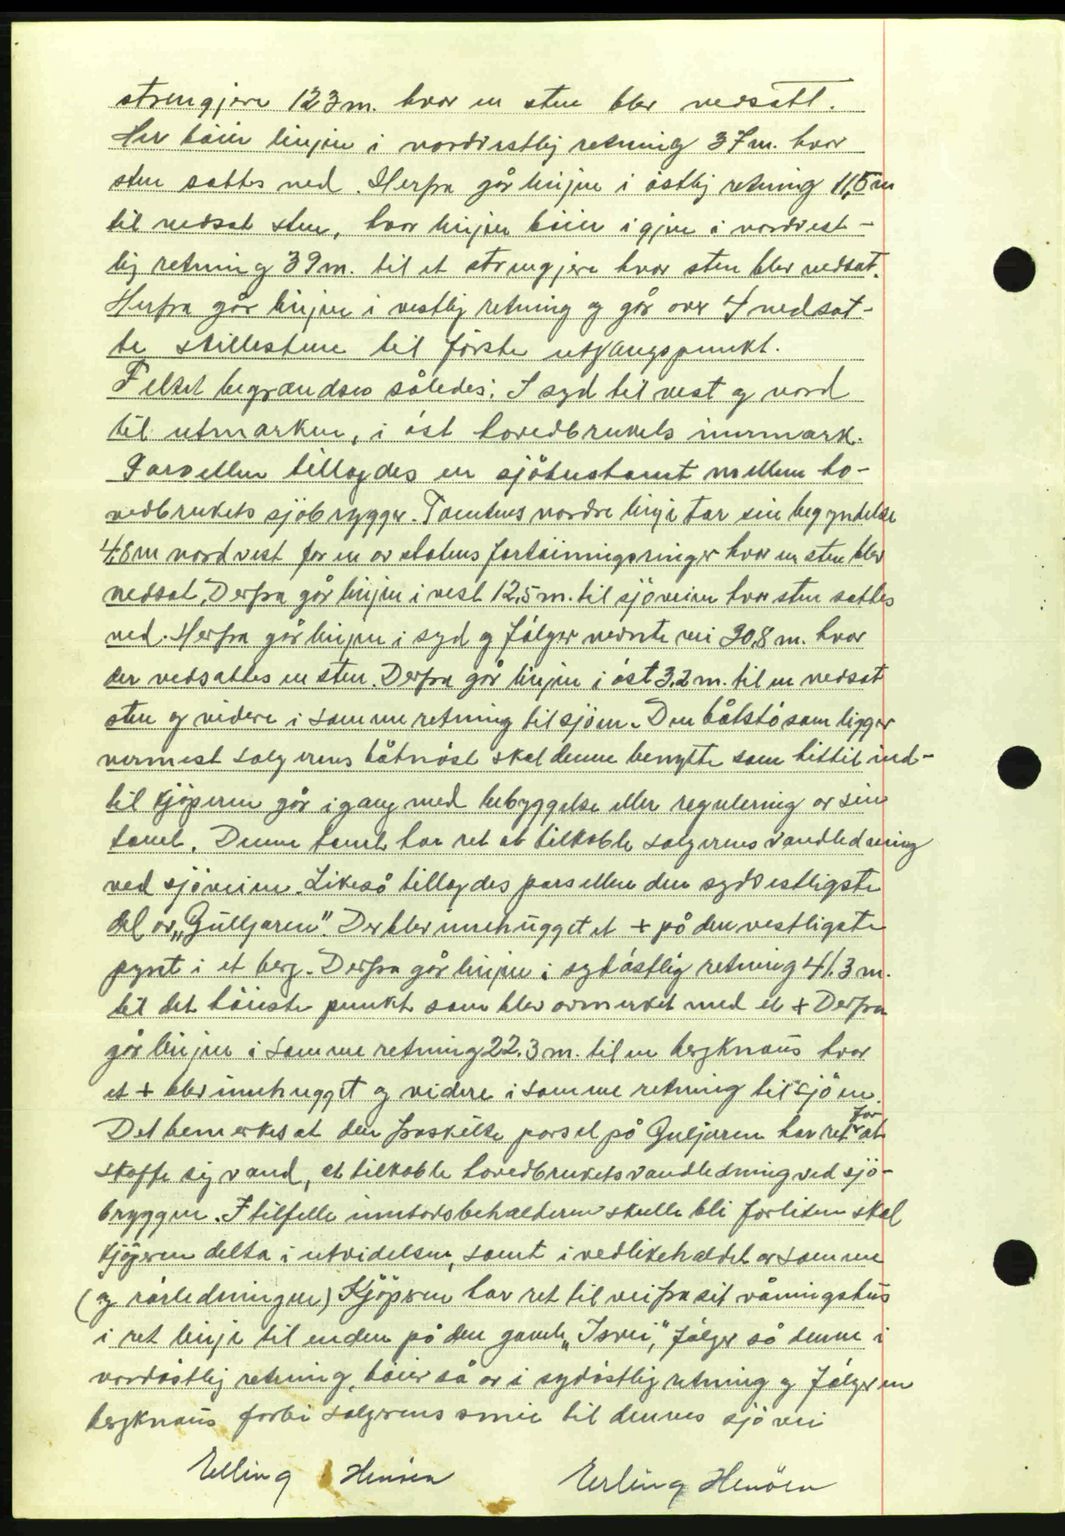 strengjere 123 m. hvor en sten blev nedsatt.
Her böier linjen i nordvestlig retning 37 m. hvor
sten sattes ned. Herfra går linjen i östlig retning 11,5 m
til nedsat sten, hvor linjen böier igjen i nordvest-
lig retning 39 m. til et strengjere hvor sten blev nedsat.
Herfra går linjen i vestlig retning og går over 4 nedsat-
te skillestene til förste utgangspunkt.
Feltet begrændses således: I syd til vest og nord
til utmarken, i öst hovedbrukets innmark.
Parsellen tillagdes en sjöhustomt mellem ho-
vedbrukets sjöbrygger. Tomtens nordre linje tar sin begyndelse
4,8 m nordvest for en av statens fortöiningsringer hvor en sten blev
nedsat. Derfra går linjen i vest 12,5 m. til sjöveien hvor sten sattes
ned. Herfra går linjen i syd og fölger nevnte vei 20,8 m. hvor
der nedsattes en sten. Derfra går linjen i öst 3,2 m. til en nedsat
sten og videre i samme retning til sjöen. Den båtstö som ligger
nærmest selgerens båtnöst skal denne benytte som hittil ind-
til kjöperen går igang med bebyggelse eller regulering av sin
tomt. Denne tomt har ret at tilkoble selgerens vandledning
ved sjöveien. Likeså tillagdes parsellen den sydvestligste
del av „Gulljaren". Der blev innehugget et + på den vestligste
pynt i et berg. Derfra går linjen i sydöstlig retning 41,3 m.
til det höieste punkt som blev avmerket med et + Derfra
går linjen i samme retning 22,3 m. til en bergknaus hvor
et + blev innehugget og videre i samme retning til sjöen.
Det bemerkes at den fraskilte parsel på Guljaren har ret for at
skaffe sig vand, at tilkoble hovedbrukets vandledning ved sjö-
bryggen. I tilfelle inntaksbeholderen skulle bli for liten skal
kjöperen delta i utvidelsen, samt i vedlikeholdet av samme
(og rörledningen) Kjöperen har ret til vei fra sit våningshus
i ret linje til enden på den gamle „Isvei", fölger så denne i
nordöstlig retning, böier så av i sydöstlig retning og fölger en
bergknaus forbi selgerens smie til dennes sjövei
Elling Henöen Erling Henöen